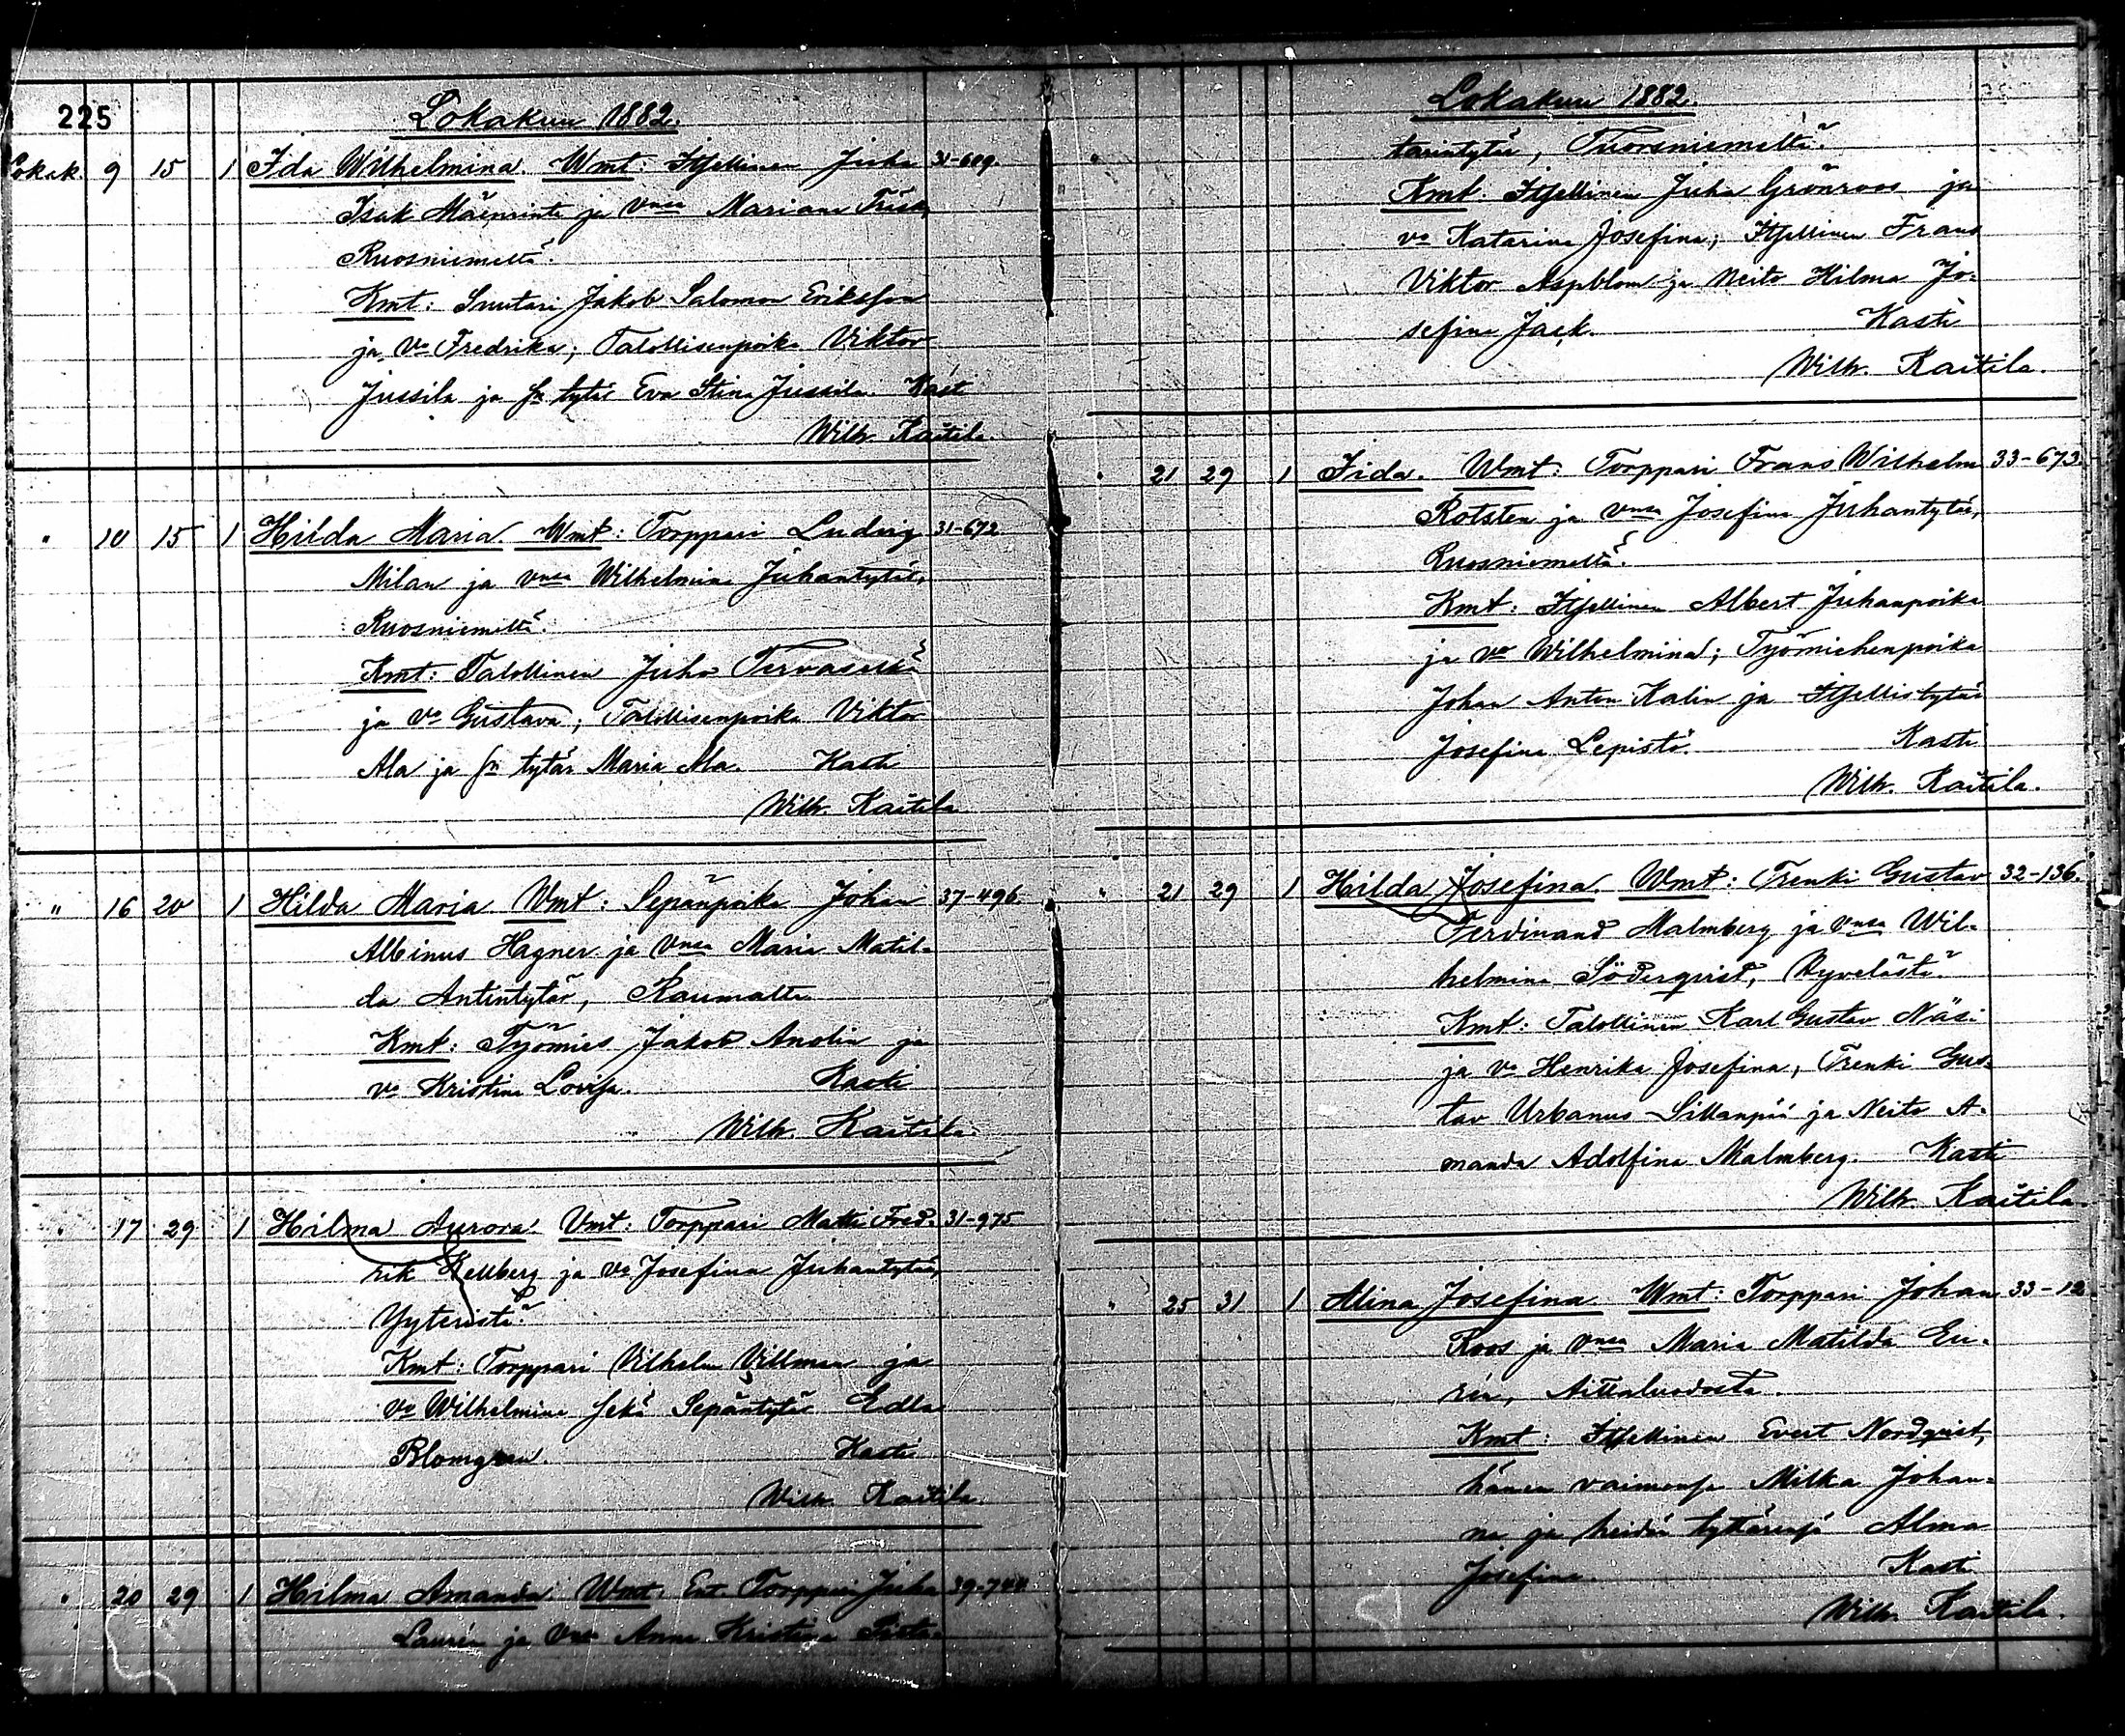 225
Lokakuu 1882.
Lokak. 9 15 1 Ida Wilhelmina. Wmt: Itsellinen Juha 31-609.
Isak Mäenrinta ja vnsa Mariana
Ruosniemeltä.
Kmt: Suutari Jakob Salomon Eriksson
ja vo Fredrika; Talollisenpoika Viktor
Jussila ja sn tytär Eva Stina Jussila. Kasti
Wilh. Kaitila.
" 10 15 1 Hilda Maria. Wmt: Torppari Ludvig 31-672
Milan ja vnsa Wilhelmina Juhantytär,
Ruosniemeltä.
Kmt: Talollinen Juho
ja vo Gustava; Talollisenpoika Viktor
Ala ja sn tytär Maria Ala. Kasti
Wilh. Kaitila
" 16 20 1 Hilda Maria Wmt: Sepänpoika Johan 37-496
Albinus Hagner ja vnsa Maria Matil-
da Antintytär, Raumalta
Kmt: Työmies Jakob Andlin ja
vo Kristina Lovisa. Kasti
Wilh. Kaitila.
" 17 29 1 Hilma Aurora. Vmt: Torppari Matti Fred- 31-975
rik Hellberg ja vo Josefina Juhantytär,
Yyteristä.
Kmt: Torppari Vilhelm Villman ja
vo Wilhelmina sekä Sepäntytär Edla
Blomgren. Kasti
Wilh. Kaitila.
" 20 29 1 Hilma Amanda. Wmt. Ent. Torppari Juha 39-744
Laurén ja vnsa Anna Kristina
Lokakuu 1882.
" tarintytär, Tuorsniemeltä.
Kmt: Itsellinen Juha Grönroos ja
vo Katarina Josefina; Itsellinen Frans
Viktor Aspblom ja Neito Hilma Jo-
sefina Jack. Kasti
Wilh. Kaitila.
" 21 29 1 Iida. Wmt: Torppari Frans Wilhelm 33-673.
Rotsten ja vnsa Josefina Juhantytär,
Ruosniemeltä.
Kmt: Itsellinen Albert Juhanpoika
ja vo Wilhelmina; Työmiehenpoika
Johan Anton Kalin ja Itsellistytär
Josefina Lepistö. Kasti
Wilh. Kaitila.
" 21 29 1 Hilda Josefina. Wmt: Trenki Gustav 32-136.
Ferdinand Malmberg ja vnsa Wil-
helmina Söderqvist, Hyvelästä.
Kmt: Talollinen Karl Gustav Näsi
ja vo Henrika Josefina, Trenki Gus-
tav Urbanus Sillanpää ja Neito A-
manda Adolfina Malmberg. Kasti
Wilh. Kaitila.
" 25 31 1 Alina Josefina. Wmt: Torppari Johan 33-12
Roos ja vnsa Maria Matilda Eu-
rén, Aittaluodosta.
Kmt: Itsellinen Evert Nordqvist,
hänen vaimonsa Milka Johan-
na ja heidän tyttärensä Alma
Josefina. Kasti
Wilh. Kaitila.